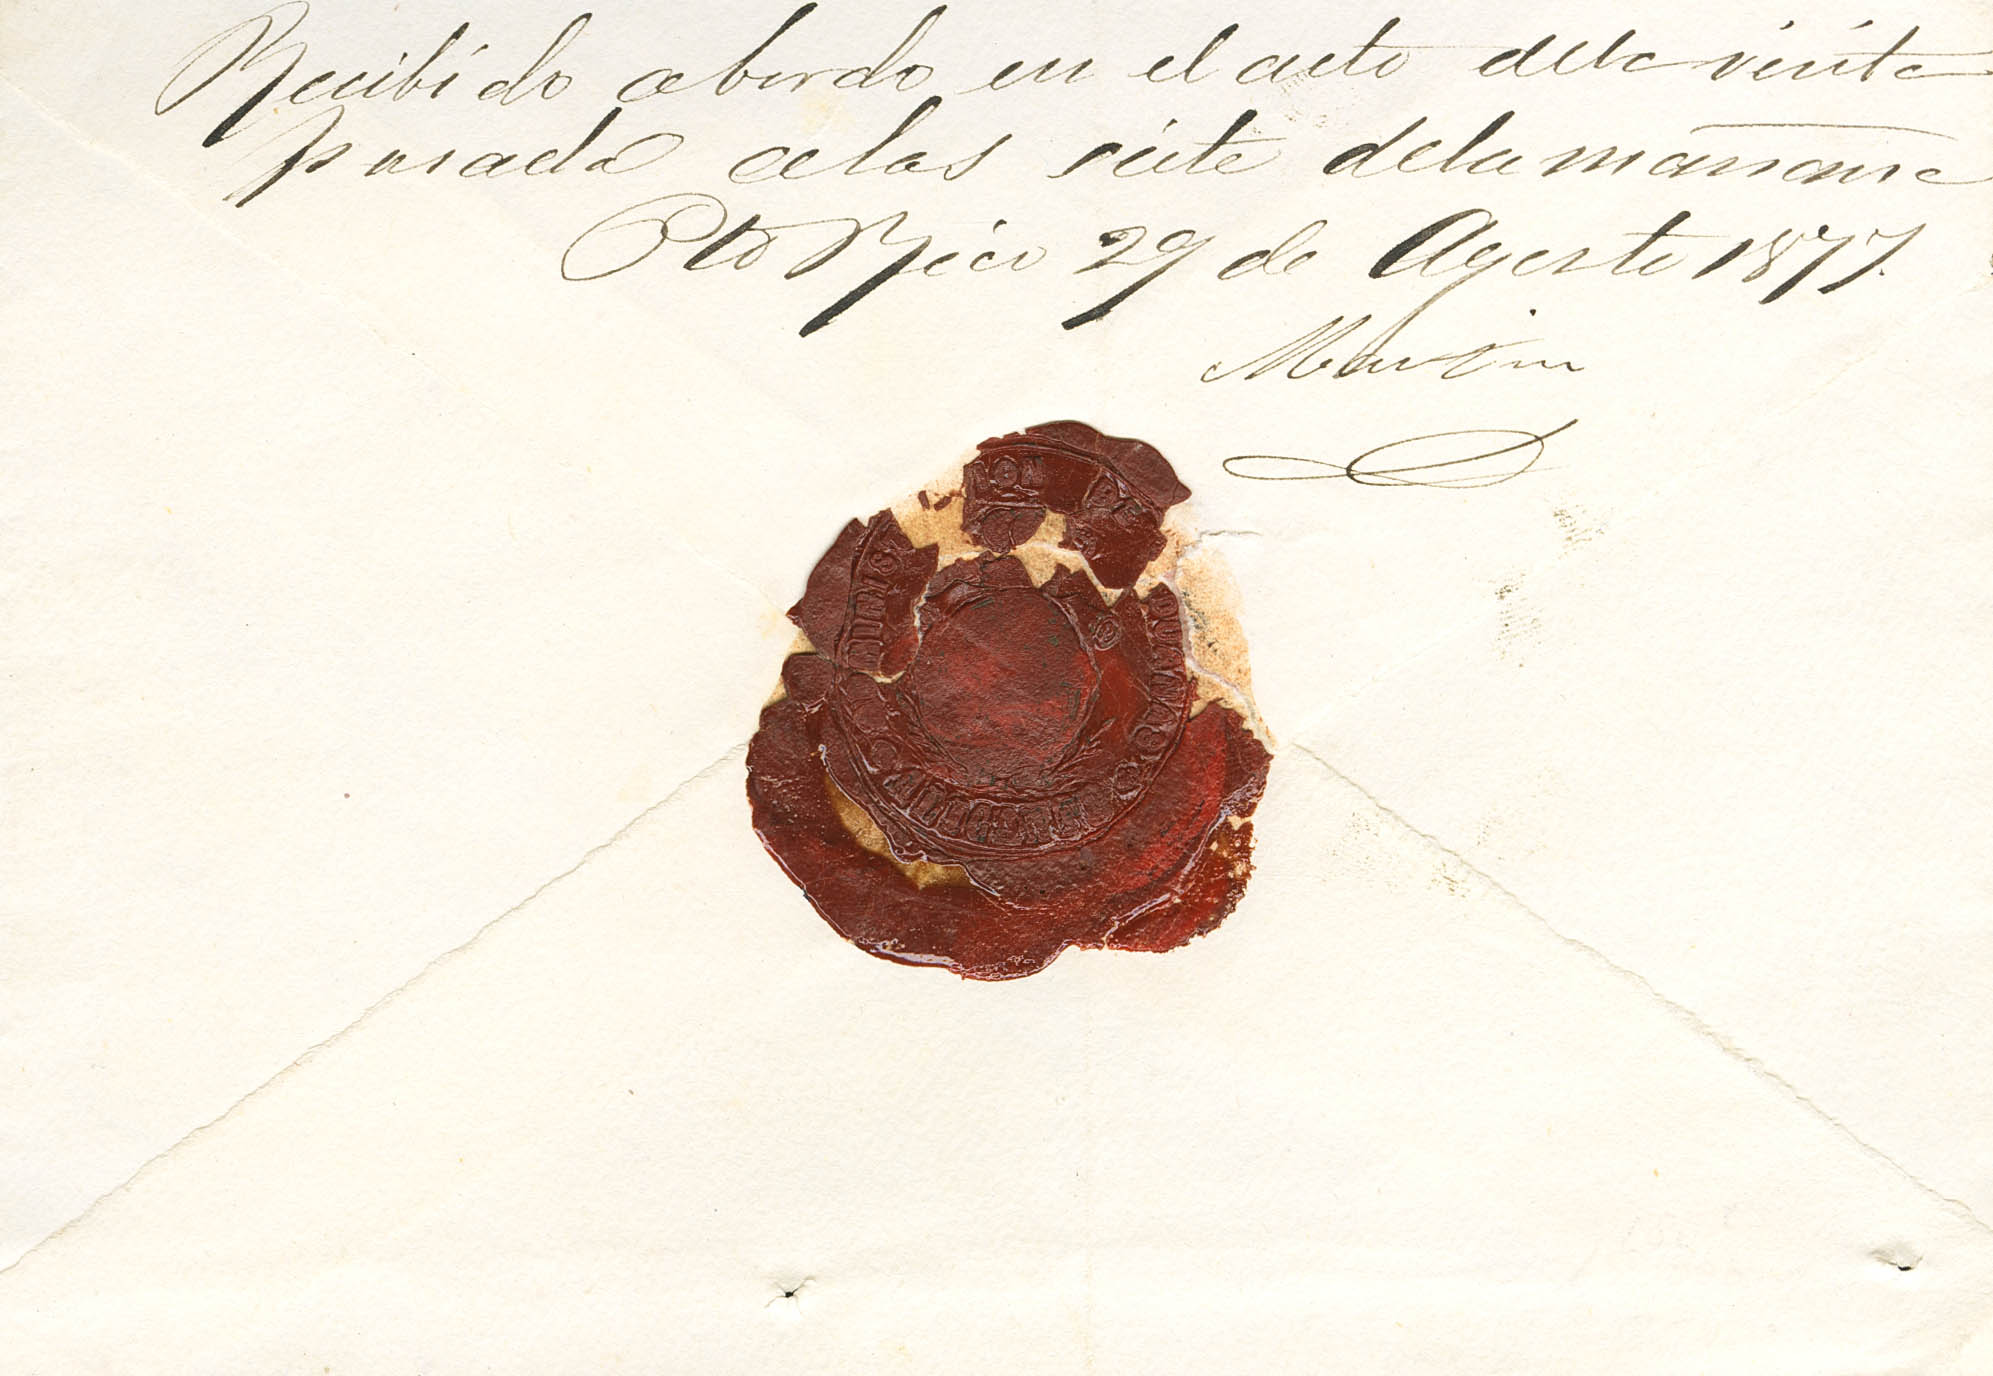 Recibido abordo en el acto dela visita
pasada alas siete dela mañana
Pto Rico 29 de Agosto 1877.
Martin
ADMINIST CION DE ADUANAS